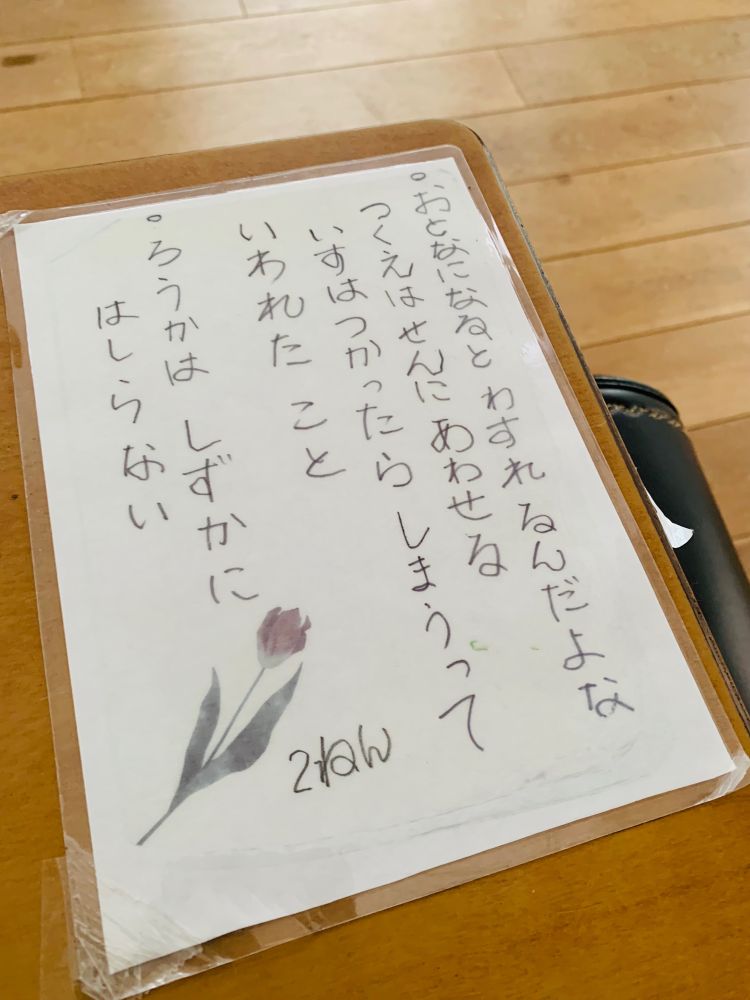 。おとなになると わすれるんだよな
つくえはせんに あわせる
いすはつかったら しまうって
いわれた こと
。ろうかは しずかに
はしらない
2ねん